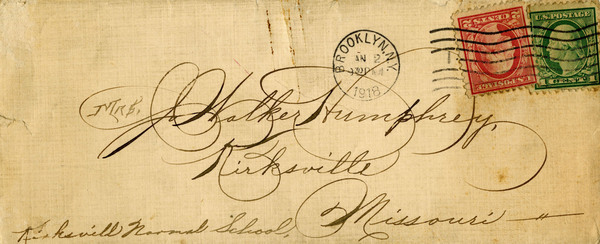 BROOKLYN, N.Y.
JAN 2
1918
2 CENTS 2
U.S. POSTAGE
U.S. POSTAGE
1 CENT 1
Mrs. J. Walker Humphrey,
Kirksville
Missouri
Kirksvill Normal School.